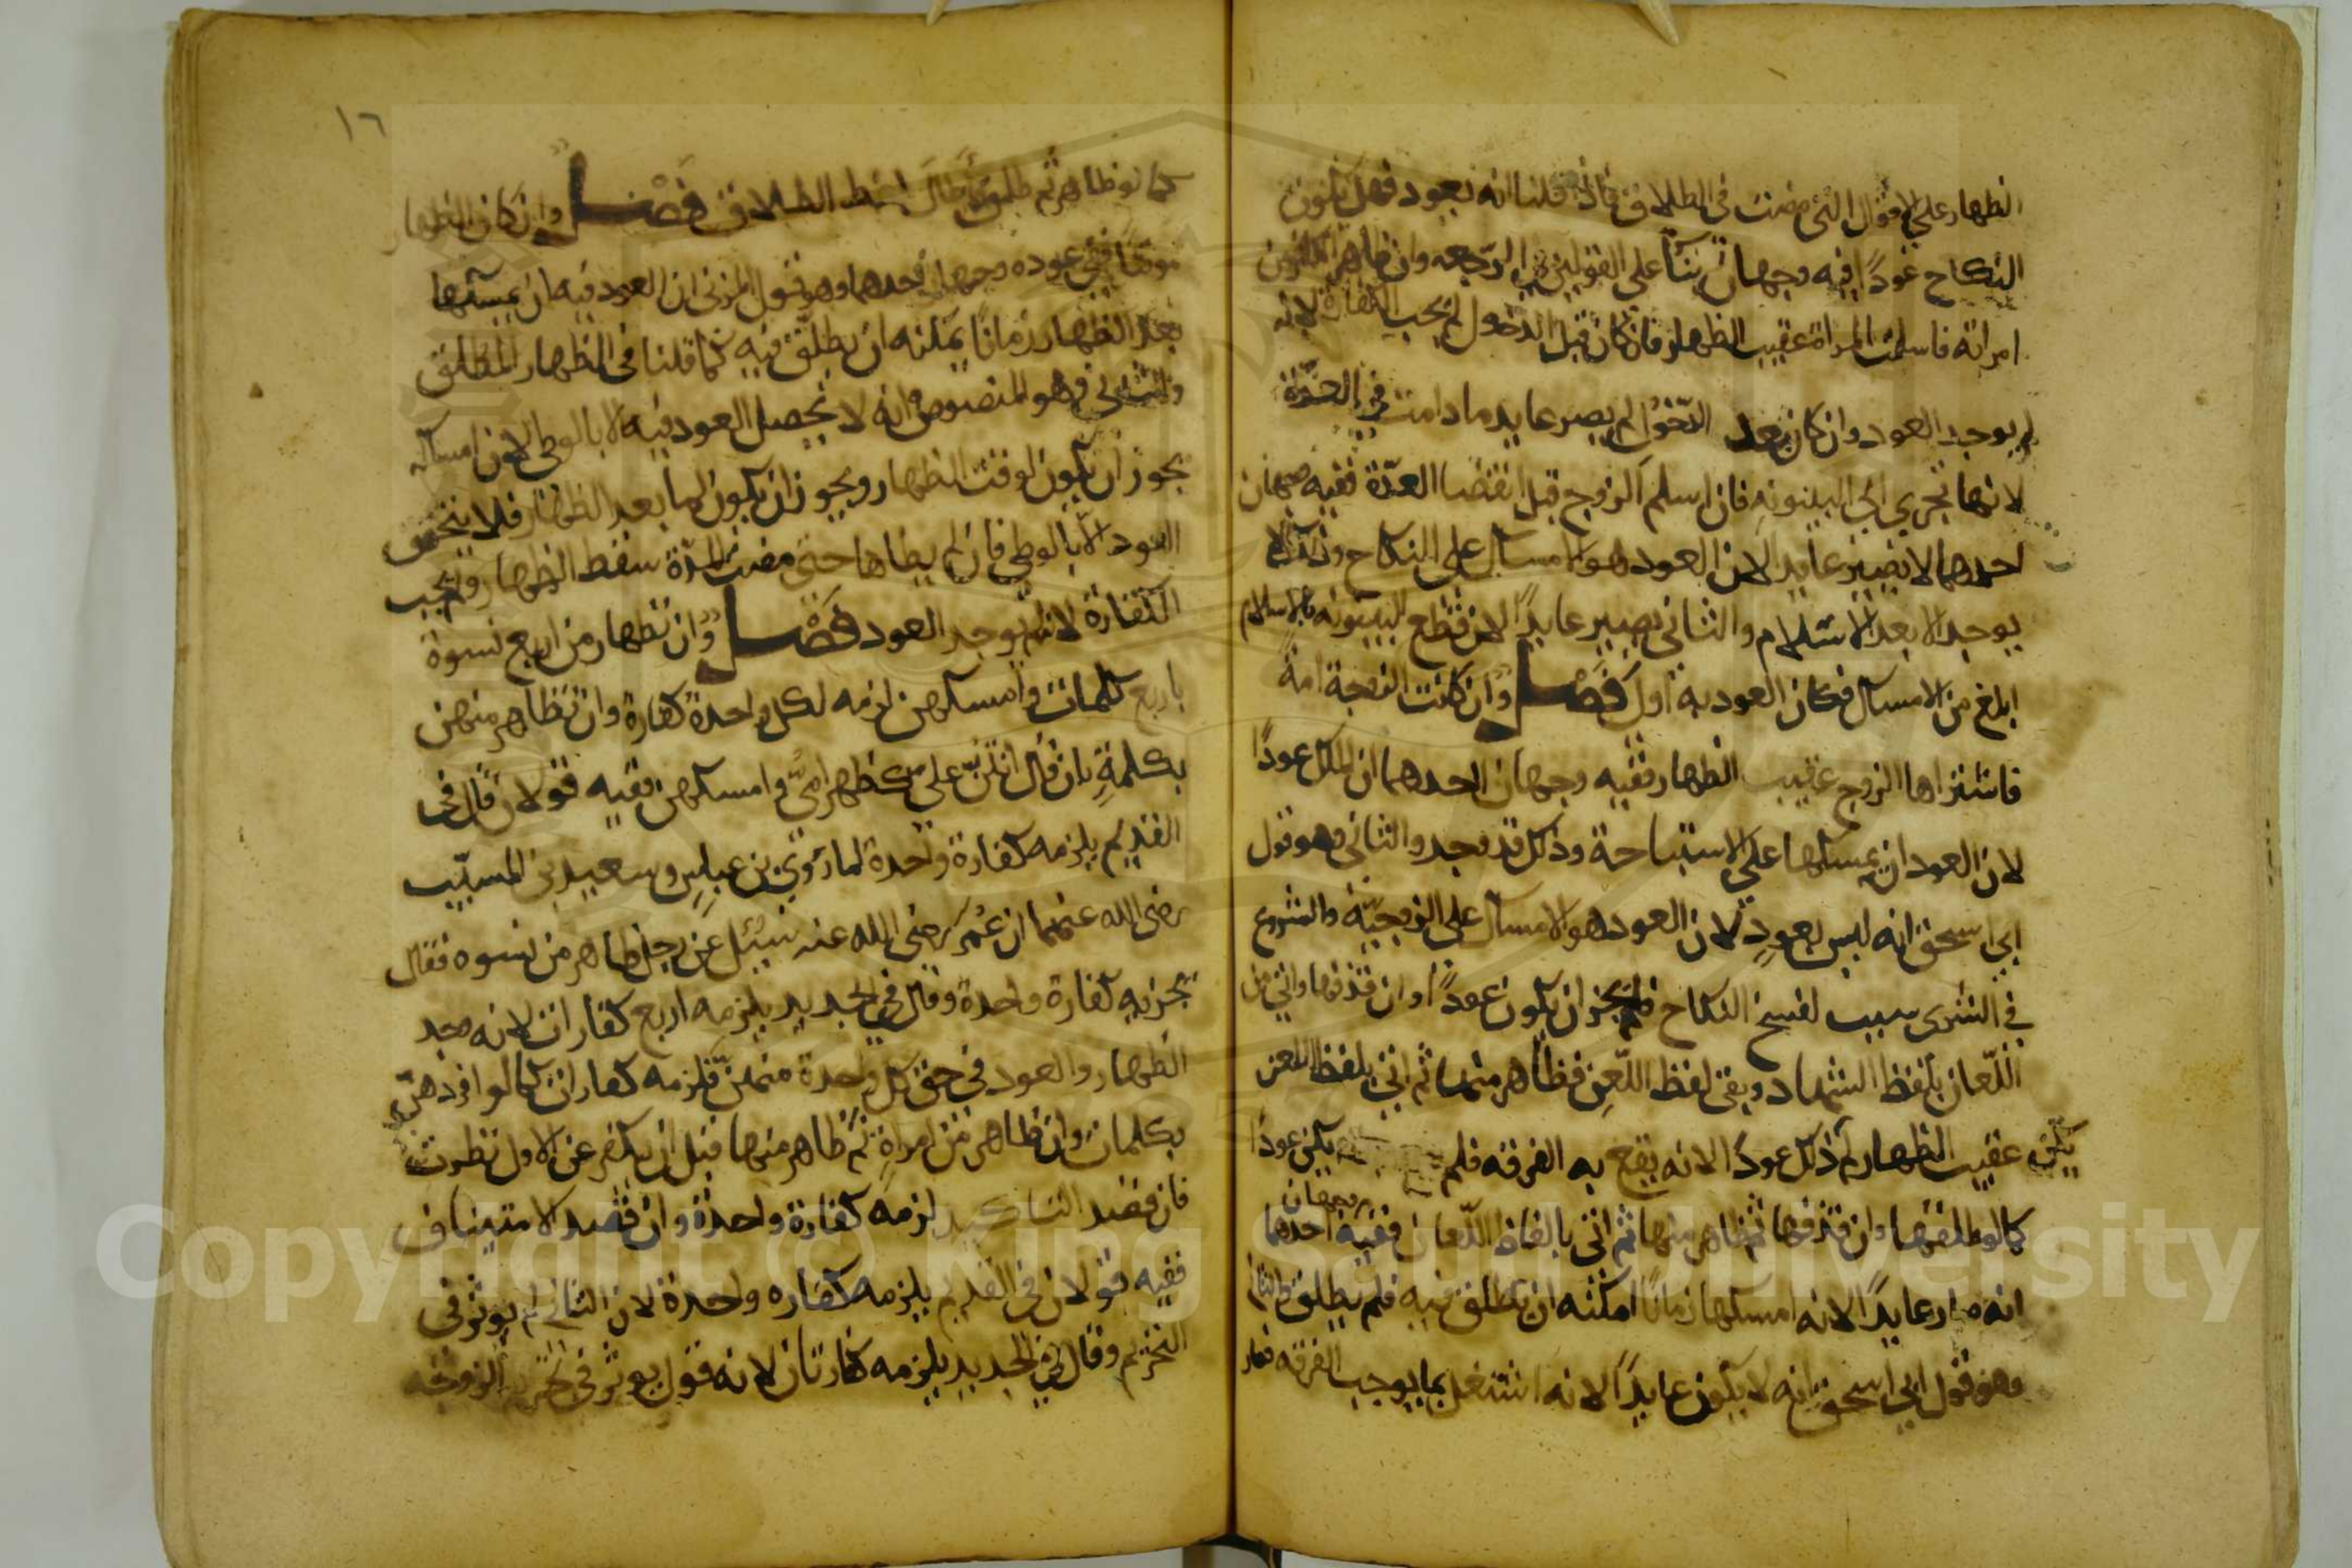 الظهار على الاقوال التي مضت في الطلاق فاذا قلنا انه يعود فهل يكون
النكاح عودًا فيه وجهان بنآ على القولين في الرجعه وان ظاهر الكافر من
امراته فاسلمت المراة عقيب الظهار فان كان قبل الدخول لم يجب الكفارة لانه
لم يوجد العود وان كان بعد الدّخول لم يصر عايد ما دامت في العدّة
لانها تجري الي البينونه فان اسلم الزوج قبل انقضا العدّة ففيه وجهان
احدهما لا يصير عايد الان العود هو الامساك على النكاح وذلك لا
يوجد الا بعد الاسلام والثاني يصير عايدًا لان قطع البينونه بالاسلام
ابلغ من الامساك فكان العود به اولى فَصْل وان كانت الزوجة امة
فاشتراها الزوج عقيب الظهار ففيه وجهان احدهما ان الملك عودًا
لان العود ان يمسكها على الاستباحة وذلك قد وجد والثاني وهو قول
ابي اسحق انه ليس بعودٍ لان العود هو الامساك على الزوجيّة والشروع
في الشرى سبب لفسخ النكاح فلم يجز ان يكون عودًا وان قذفها واتي من
اللّعان بلفظ الشهاد وبقى لفظ اللّعن فظاهر منها ثم اتى بلفظ اللعن
عقيب الظهار لم يكن ذلك عودًا لانه يقع به الفرقه فلم يكن عودًا
كما لو طلقها وان قذفها ثم ظاهر منها ثم اتى بالفاظ اللّعان ففيه وجهان احدهما
انه صار عايدًا لانه امسكها زمانًا امكنه ان يطلق فيه فلم يطلق والثاني
وهو قول ابي اسحق انه لا يكون عايدًا لانه اشتغل بما يوجب الفرقه فصار
١٦
كما لو ظاهر ثم طلق واطال لفظ الطلاق فَصْل وان كان الظهار
موقتًا ففي عوده وجهان احدهما وهو قول المزني ان العود فيه ان يمسكها
بعد الظهار زمانًا يمكنه ان يطلّق فيه كما قلنا في الظهار المطلق
والثاني وهو المنصوص انه لا يحصل العود فيه الا بالوطي لان امساكه
يجوز ان يكون لوقت الظهار ويجوز ان يكون لما بعد الظهار فلا يتحقق
العود الّا بالوطي فان لم يطاها حتى مضت المدّة سقط الظهار ولم يجب
الكفارة لانه لم يوجد العود فَصْل وان تظهار من اربع نسوة
باربع كلمات وامسكهن لزمه لكل واحدة كفارة وان تظاهر منهن
بكلمةٍ بان قال انتنّ عليّ كظهر امّي وامسكهن ففيه قولان قال في
القديم يلزمه كفارة واحدة لما روي بن عباس وسعيد بن المسيّب
رضى الله عنهما ان عُمَر رضى الله عنه سُئل عن رجل ظاهر من نسوه فقال
يجزيه كفارة واحدة وقال في الجديد يلزمه اربع كفارات لانه وجد
الظهار والعود في حق كل واحدة منهنّ فلزمه كفارات كما لو افردهنّ
بكلمات وان ظاهر من امراةٍ ثم ظاهر منها قبل ان يكفر عن الاول نظرت
فان قصد التاكيد لزمه كفارة واحدة وان قصد الاستيناف
ففيه قولان في القديم يلزمه كفاره واحدة لان الثاني لم يوثر في
التحريم وقال في الجديد يلزمه كفارتان لانه قول يوثر في تحريم الزوجه